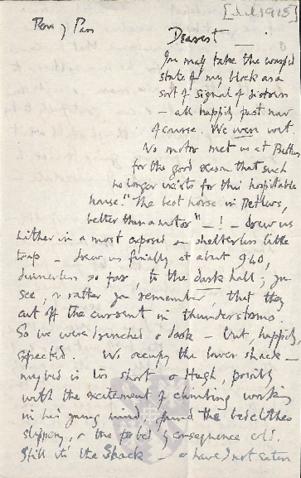 [Jul 1915]
Pen y Pass
Dearest —
You may take the warped
state of my block as a
sort of signal of distress
— all happily past now
of course. We were wet.
No motor met us at Bethes.
for the good reason that such
no longer exists for this hospitable
house. "The best horse in Bethes,
better than a motor" — ! — drew us
hither in a most exposed & shelterless little
trap — drew us finally at about 9.40,
dinnerless so far, to the dark hall; you
see, or rather you remember, that they
cut off the current in thunderstorms.
So we were drenched & look — but happily
expected. We occupy the lower shack —
my bed is too short — & Hugh, possibly
with the excitement of climbing working
in his young mind, found the bedclothes
slippery, & the to bed's consequence cold.
Still it's the Shack — & have I not eaten